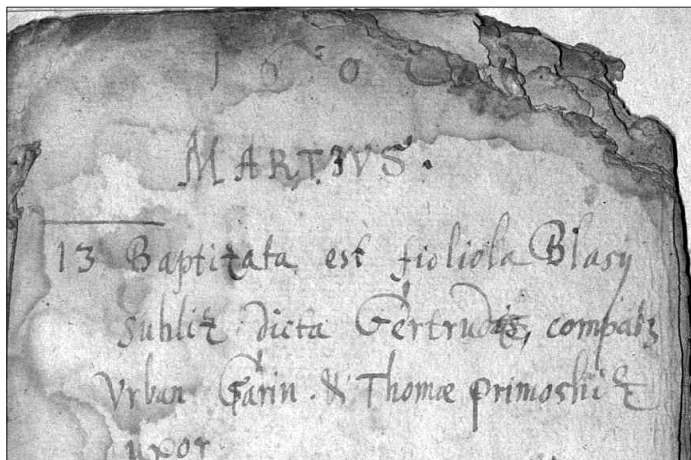 160
MARTIVS.
13 Baptizata est fioliola Blasÿ
dicta Gertrudis,
Vrban Garin. & Thomæ primoshiz
uxor